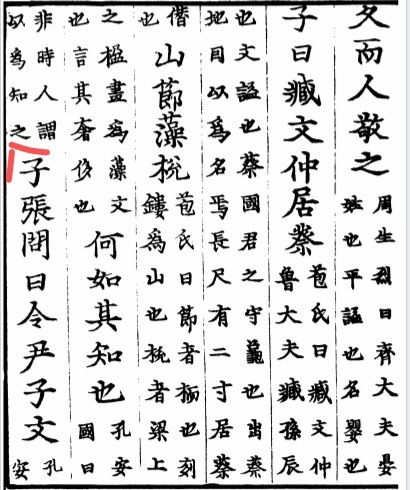 久而人敬之周生烈曰齊大夫晏姓也平謚也名嬰也
子曰臧文仲居蔡苞氏曰臧文仲魯大夫臧孫辰
也文謚也蔡國君之守龜也出蔡地因以為名焉長尺有二寸居蔡
僭也山節藻梲苞氏曰節者栭也刻鏤為山也梲者梁上
之楹畫為藻文也言其奢侈也何如其知也孔安國曰
非時人謂以為知之子張問曰令尹子文孔安